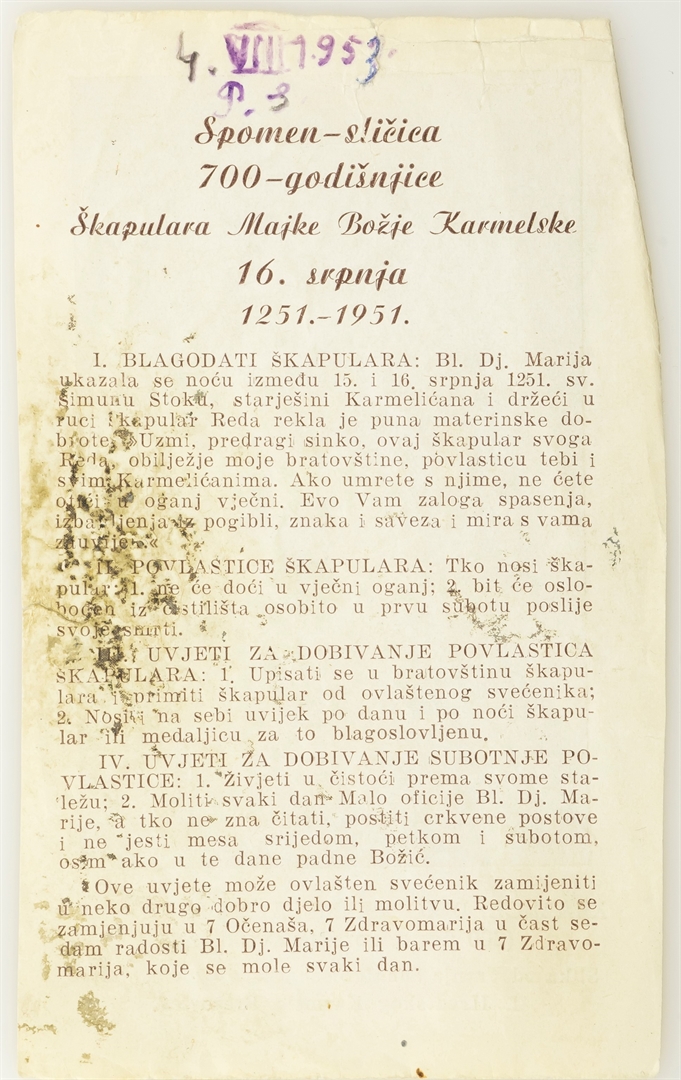 4. VIII 1953.
P. 3
Spomen-sličica
700-godišnjice
Škapulara Majke Božje Karmelske
16. srpnja
1251.-1951.
I. BLAGODATI ŠKAPULARA: Bl. Dj. Marija
ukazala se noću između 15. i 16. srpnja 1251. sv.
Šimunu Stoku, starješini Karmelićana i držeći u
ruci škapular Reda rekla je puna materinske do-
brote: »Uzmi, predragi sinko, ovaj škapular svoga
Reda, obilježje moje bratovštine, povlasticu tebi i
svim Karmelićanima. Ako umrete s njime, ne ćete
otići u oganj vječni. Evo Vam zaloga spasenja,
izbavljenja iz pogibli, znaka i saveza i mira s vama
zauvijek.«
II. POVLASTICE ŠKAPULARA: Tko nosi ška-
pular: 1. ne će doći u vječni oganj; 2. bit će oslo-
bođen iz čistilišta osobito u prvu subotu poslije
svoje smrti.
III. UVJETI ZA DOBIVANJE POVLASTICA
ŠKAPULARA: 1. Upisati se u bratovštinu škapu-
lara i primiti škapular od ovlaštenog svećenika;
2. Nositi na sebi uvijek po danu i po noći škapu-
lar ili medaljicu za to blagoslovljenu.
IV. UVJETI ZA DOBIVANJE SUBOTNJE PO-
VLASTICE: 1. Živjeti u čistoći prema svome sta-
ležu; 2. Moliti svaki dan Malo oficije Bl. Dj. Ma-
rije, a tko ne zna čitati, postiti crkvene postove
i ne jesti mesa srijedom, petkom i subotom,
osim ako u te dane padne Božić.
Ove uvjete može ovlašten svećenik zamijeniti
u neko drugo dobro djelo ili molitvu. Redovito se
zamjenjuju u 7 Očenaša, 7 Zdravomarija u čast se-
dam radosti Bl. Dj. Marije ili barem u 7 Zdravo-
marija, koje se mole svaki dan.